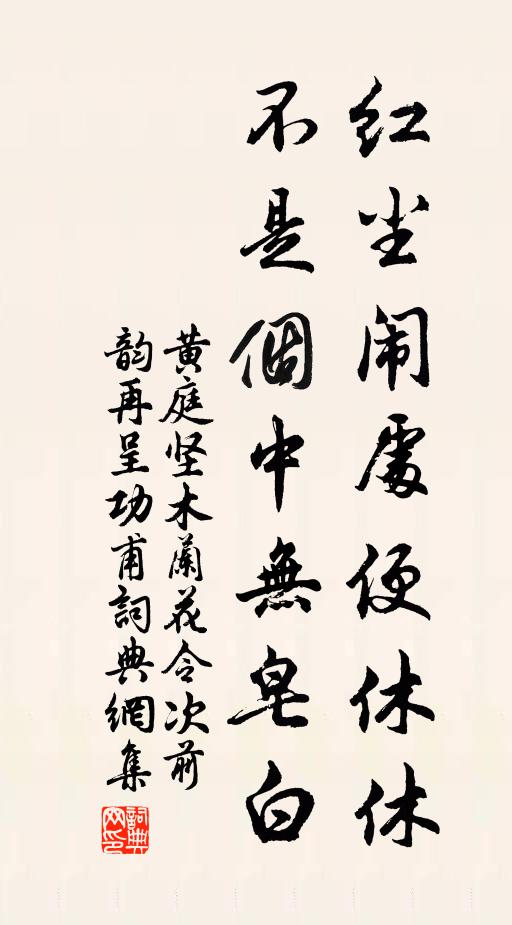 红尘闹處便休休
不是個中無皂白
黄庭坚木蘭花令次前
韵再呈功甫詞典網集
詞典
网印